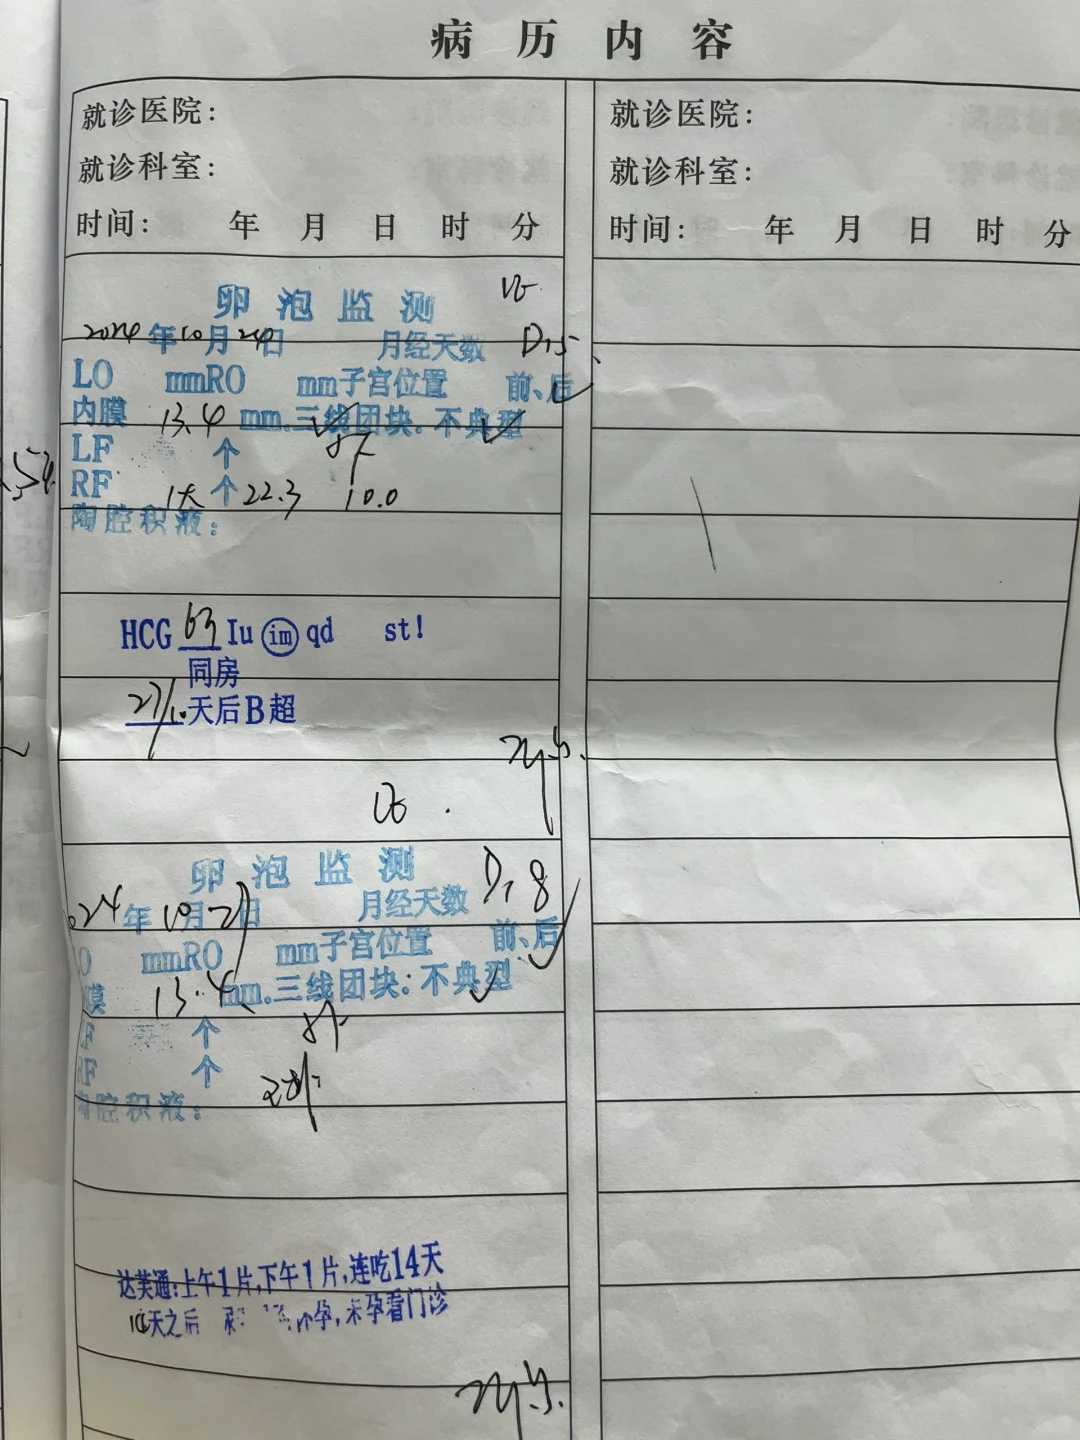 病历内容
就诊医院:
就诊科室:
时间: 年 月 日 时 分
就诊医院:
就诊科室:
时间: 年 月 日 时 分
卵泡监测
2024年10月24日 月经天数 D15
LO mmRO mm子宫位置 前、后
内膜 13.4 mm.三线团块:不典型
LF 个
RF 1大个 22.3 10.0
陶腔积液:
HCG Iu im qd st!
同房
27/10天后B超
卵泡监测 D18
024年10月27日 月经天数
O mmRO mm子宫位置 前、后
膜 13.4 mm.三线团块:不典型
F 个
RF 个
腔积液:
达芙通:上午1片,下午1片,连吃14天
天之后 孕,未孕看门诊